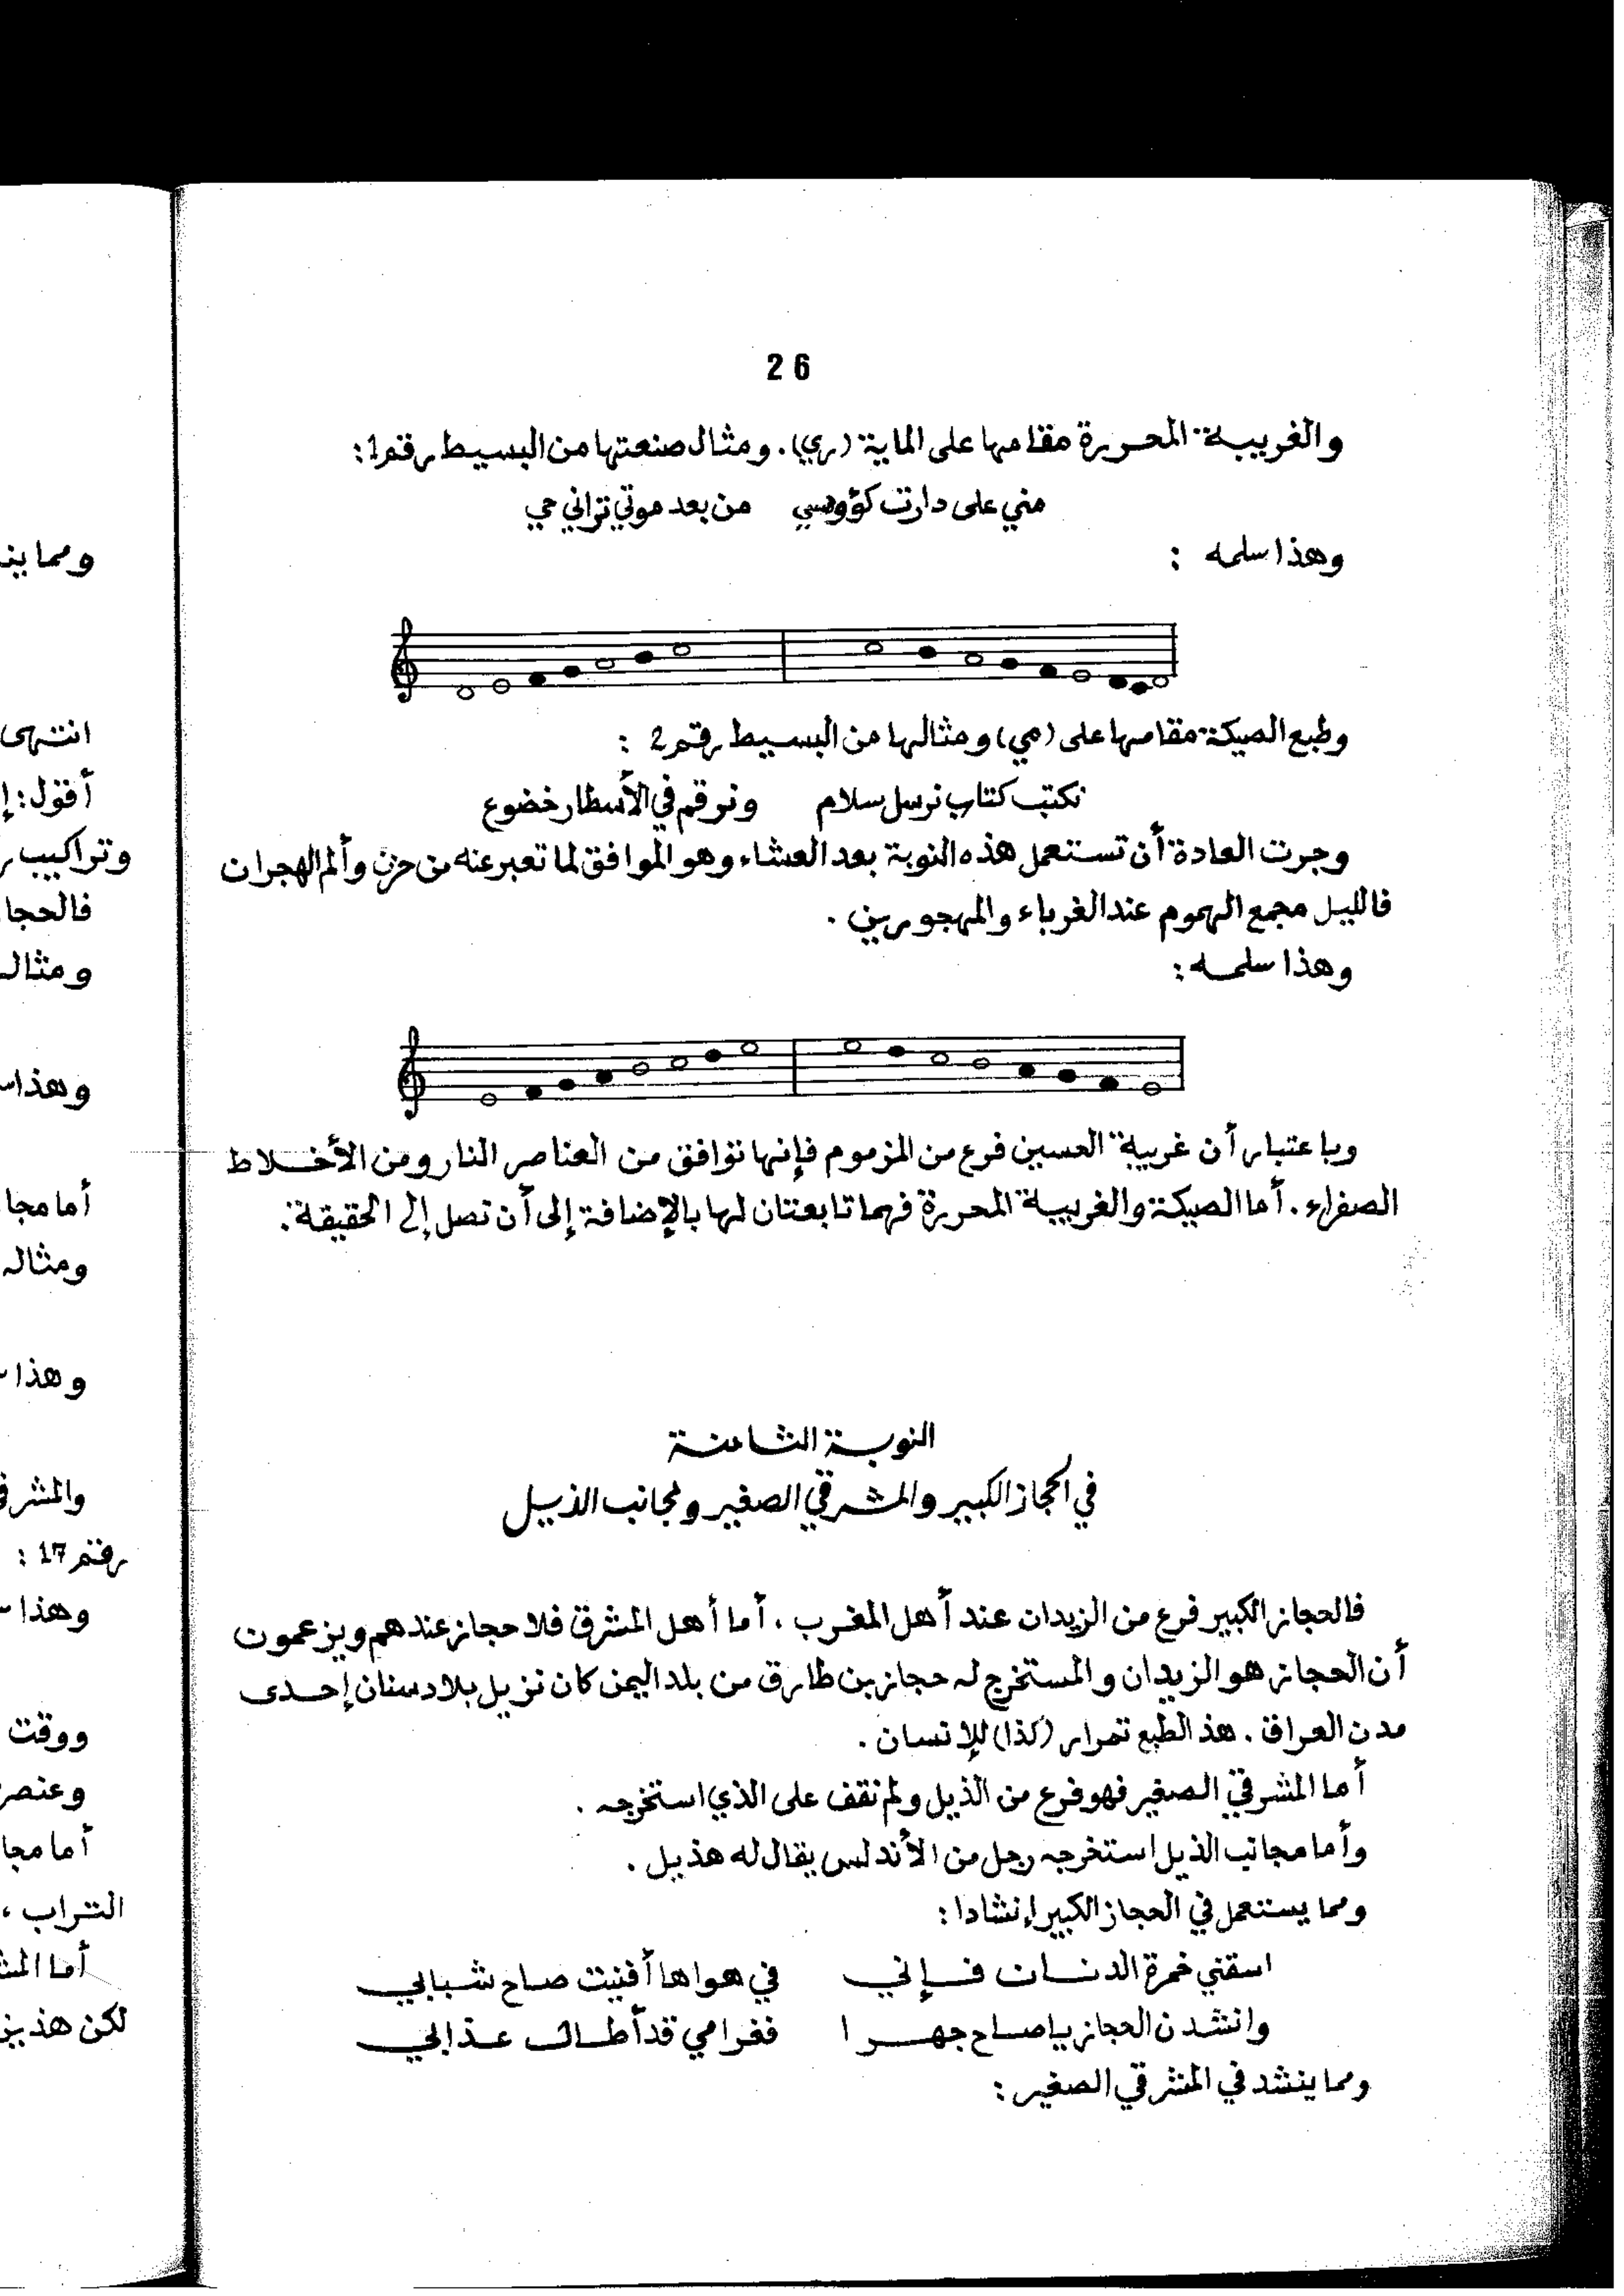 26
والغريبة المحررة مقامها على الماية (ري). ومثال صنعتها من البسيط رقم 1:
مني على دارت كؤوسي من بعد موتي تراني حي
وهذا سلمه :
وطبع الصيكة مقامها على (مي) ومثالها من البسيط رقم 2 :
نكتب كتاب نرسل سلام ونرقم في الأسطار خضوع
وجرت العادة أن تستعمل هذه النوبة بعد العشاء وهو الموافق لما تعبر عنه من حزن وألم الهجران
فالليل مجمع الهموم عند الغرباء والمهجورين .
وهذا سلمه :
وباعتبار أن غريبة الحسين فرع من المزموم فإنها توافق من العناصر النار ومن الأخلاط
الصفراء . أما الصيكة والغريبة المحررة فهما تابعتان لها بالإضافة إلى أن تصل إلى الحقيقة .
النوبة الثامنة
في الحجاز الكبير والمشرقي الصغير ومجانب الذيل
فالحجاز الكبير فرع من الزيدان عند أهل المغرب . أما أهل المشرق فلا حجاز عندهم ويزعمون
أن الحجاز هو الزيدان والمستخرج له حجاز بن طارق من بلد اليمن كان نزيل بلاد سنان إحدى
مدن العراق . هذ الطبع تمرار (كذا) للإنسان .
أما المشرقي الصغير فهو فرع من الذيل ولم نقف على الذي استخرجه .
وأما مجانب الذيل استخرجه رجل من الأندلس يقال له هذيل .
ومما يستعمل في الحجاز الكبير إنشادا :
اسقني خمرة الدنان فإني في هواها أفنيت صاح شبابي
وانشدن الحجاز يا صاح جهرا فغرامي قد أطال عذابي
ومما ينشد في المشرقي الصغير :
انتهى
أقول :
وتراكيب
ومثال
أما
ومثاله
وهذا
رقم 17 :
وهذا
ووقت
التراب ،
لكن